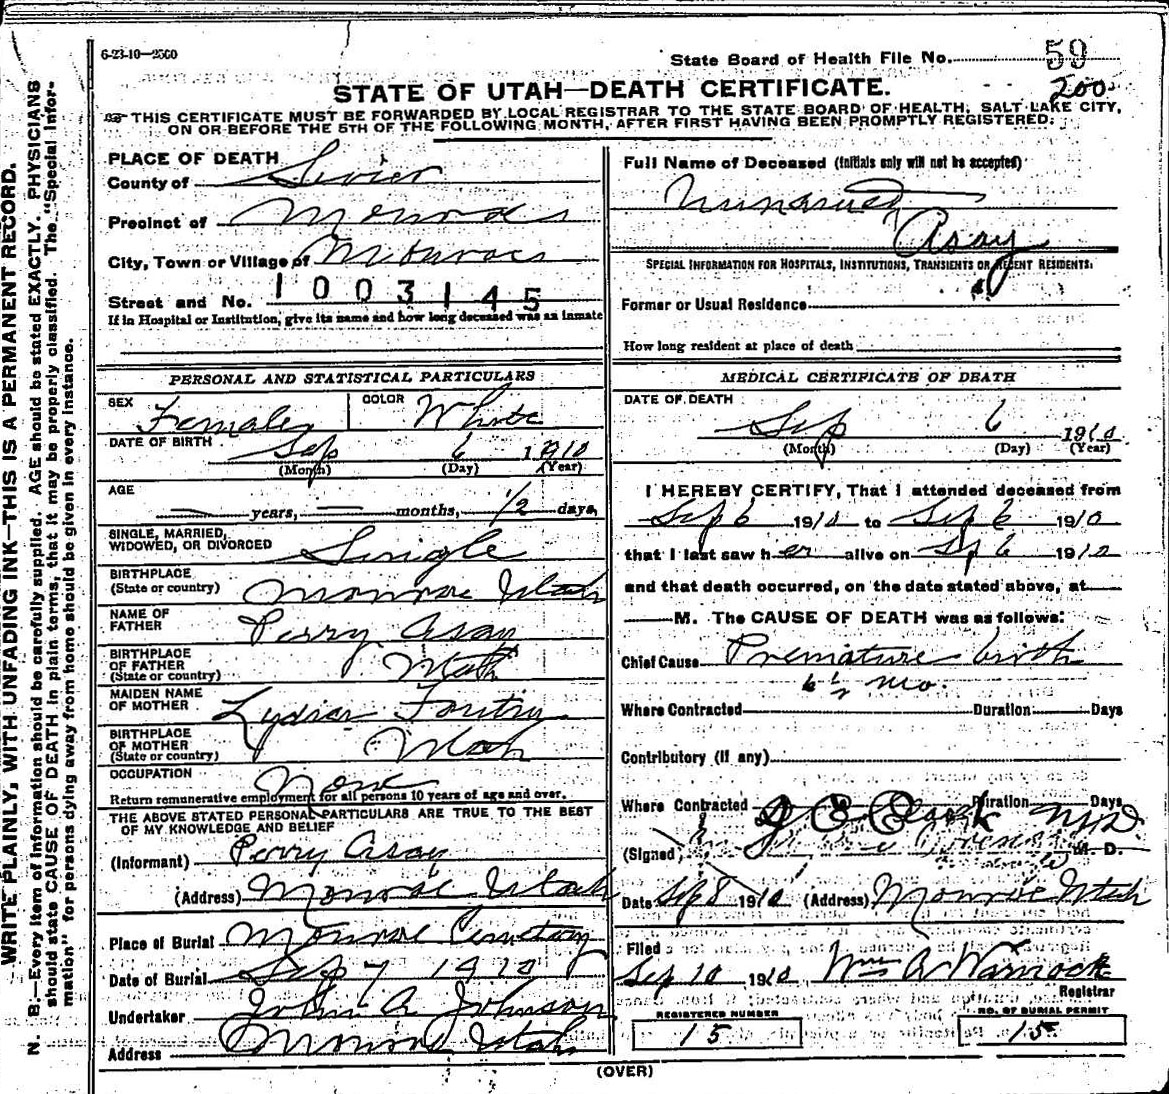 6-23-10—2500
State Board of Health File No. 59
200
STATE OF UTAH—DEATH CERTIFICATE.
THIS CERTIFICATE MUST BE FORWARDED BY LOCAL REGISTRAR TO THE STATE BOARD OF HEALTH, SALT LAKE CITY,
ON OR BEFORE THE 5TH OF THE FOLLOWING MONTH, AFTER FIRST HAVING BEEN PROMPTLY REGISTERED.
PLACE OF DEATH
County of Sevier
Precinct of Monroe
City, Town or Village of Monroe
Street and No. 1003145
If in Hospital or Institution, give its name and how long deceased was an inmate
Full Name of Deceased (Initials only will not be accepted)
Unnamed
Asay
SPECIAL INFORMATION FOR HOSPITALS, INSTITUTIONS, TRANSIENTS OR RECENT RESIDENTS.
Former or Usual Residence
How long resident at place of death
PERSONAL AND STATISTICAL PARTICULARS
SEX Female COLOR White
DATE OF BIRTH Sep 6 1910
(Month) (Day) (Year)
AGE
— years, — months, 1/2 days,
SINGLE, MARRIED,
WIDOWED, OR DIVORCED Single
BIRTHPLACE
(State or country) Monroe Utah
NAME OF
FATHER Perry Asay
BIRTHPLACE
OF FATHER
(State or country) Utah
MAIDEN NAME
OF MOTHER Lydia
BIRTHPLACE
OF MOTHER
(State or country) Utah
OCCUPATION None
Return remunerative employment for all persons 10 years of age and over.
THE ABOVE STATED PERSONAL PARTICULARS ARE TRUE TO THE BEST
OF MY KNOWLEDGE AND BELIEF
(Informant) Perry Asay
(Address) Monroe Utah
Place of Burial Monroe Cemetery
Date of Burial Sep 7 1910
Undertaker John A Johnson
Address Monroe Utah
MEDICAL CERTIFICATE OF DEATH
DATE OF DEATH
Sep 6 1910
(Month) (Day) (Year)
I HEREBY CERTIFY, That I attended deceased from
Sep 6 1910 to Sep 6 1910
that I last saw her alive on Sep 6 1910
and that death occurred, on the date stated above, at
M. The CAUSE OF DEATH was as follows:
Chief Cause Premature birth
6 1/2 mo.
Where Contracted Duration Days
Contributory (if any)
Where Contracted Duration Days
(Signed) M. D.
Date Sep 8 1910 (Address) Monroe Utah
Filed
Sep 10 1910 Wm A Warnock
Registrar
REGISTERED NUMBER
15
NO. OF BURIAL PERMIT
15
(OVER)
WRITE PLAINLY, WITH UNFADING INK—THIS IS A PERMANENT RECORD.
N. B.—Every item of information should be carefully supplied. AGE should be stated EXACTLY. PHYSICIANS
should state CAUSE OF DEATH in plain terms, that it may be properly classified. The "Special Infor-
mation" for persons dying away from home should be given in every instance.